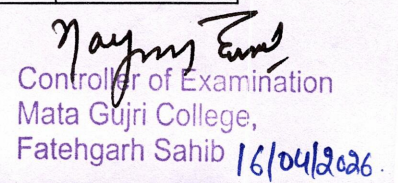 Controller of Examination
Mata Gujri College,
Fatehgarh Sahib 16/04/2026.